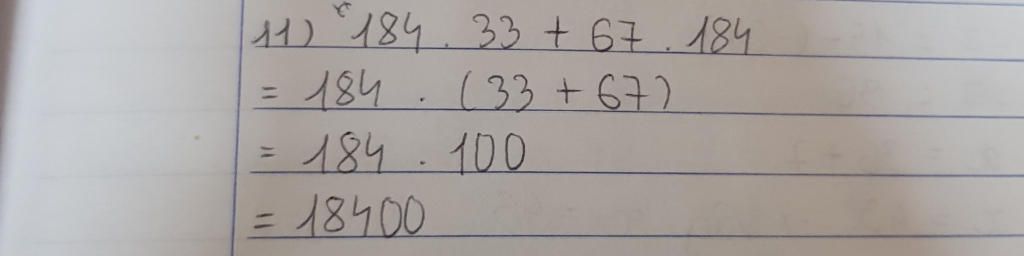 11) 184 . 33 + 67 . 184
= 184 . (33 + 67)
= 184 . 100
= 18400